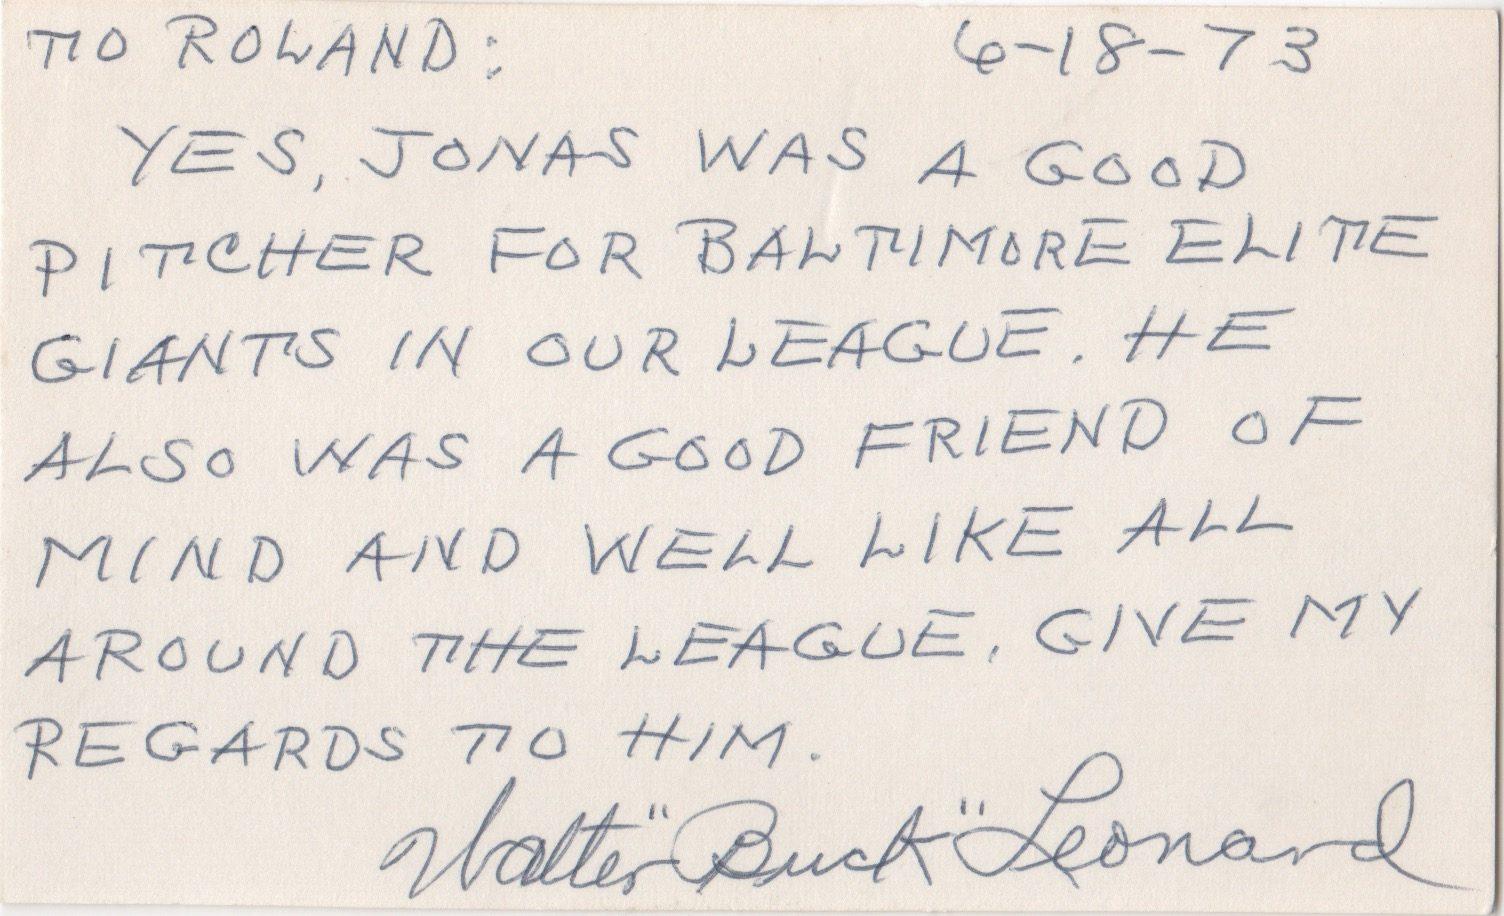 TO ROLAND: 6-18-73
YES, JONAS WAS A GOOD
PITCHER FOR BALTIMORE ELITE
GIANTS IN OUR LEAGUE. HE
ALSO WAS A GOOD FRIEND OF
MIND AND WELL LIKE ALL
AROUND THE LEAGUE. GIVE MY
REGARDS TO HIM.
Walter "Buck" Leonard